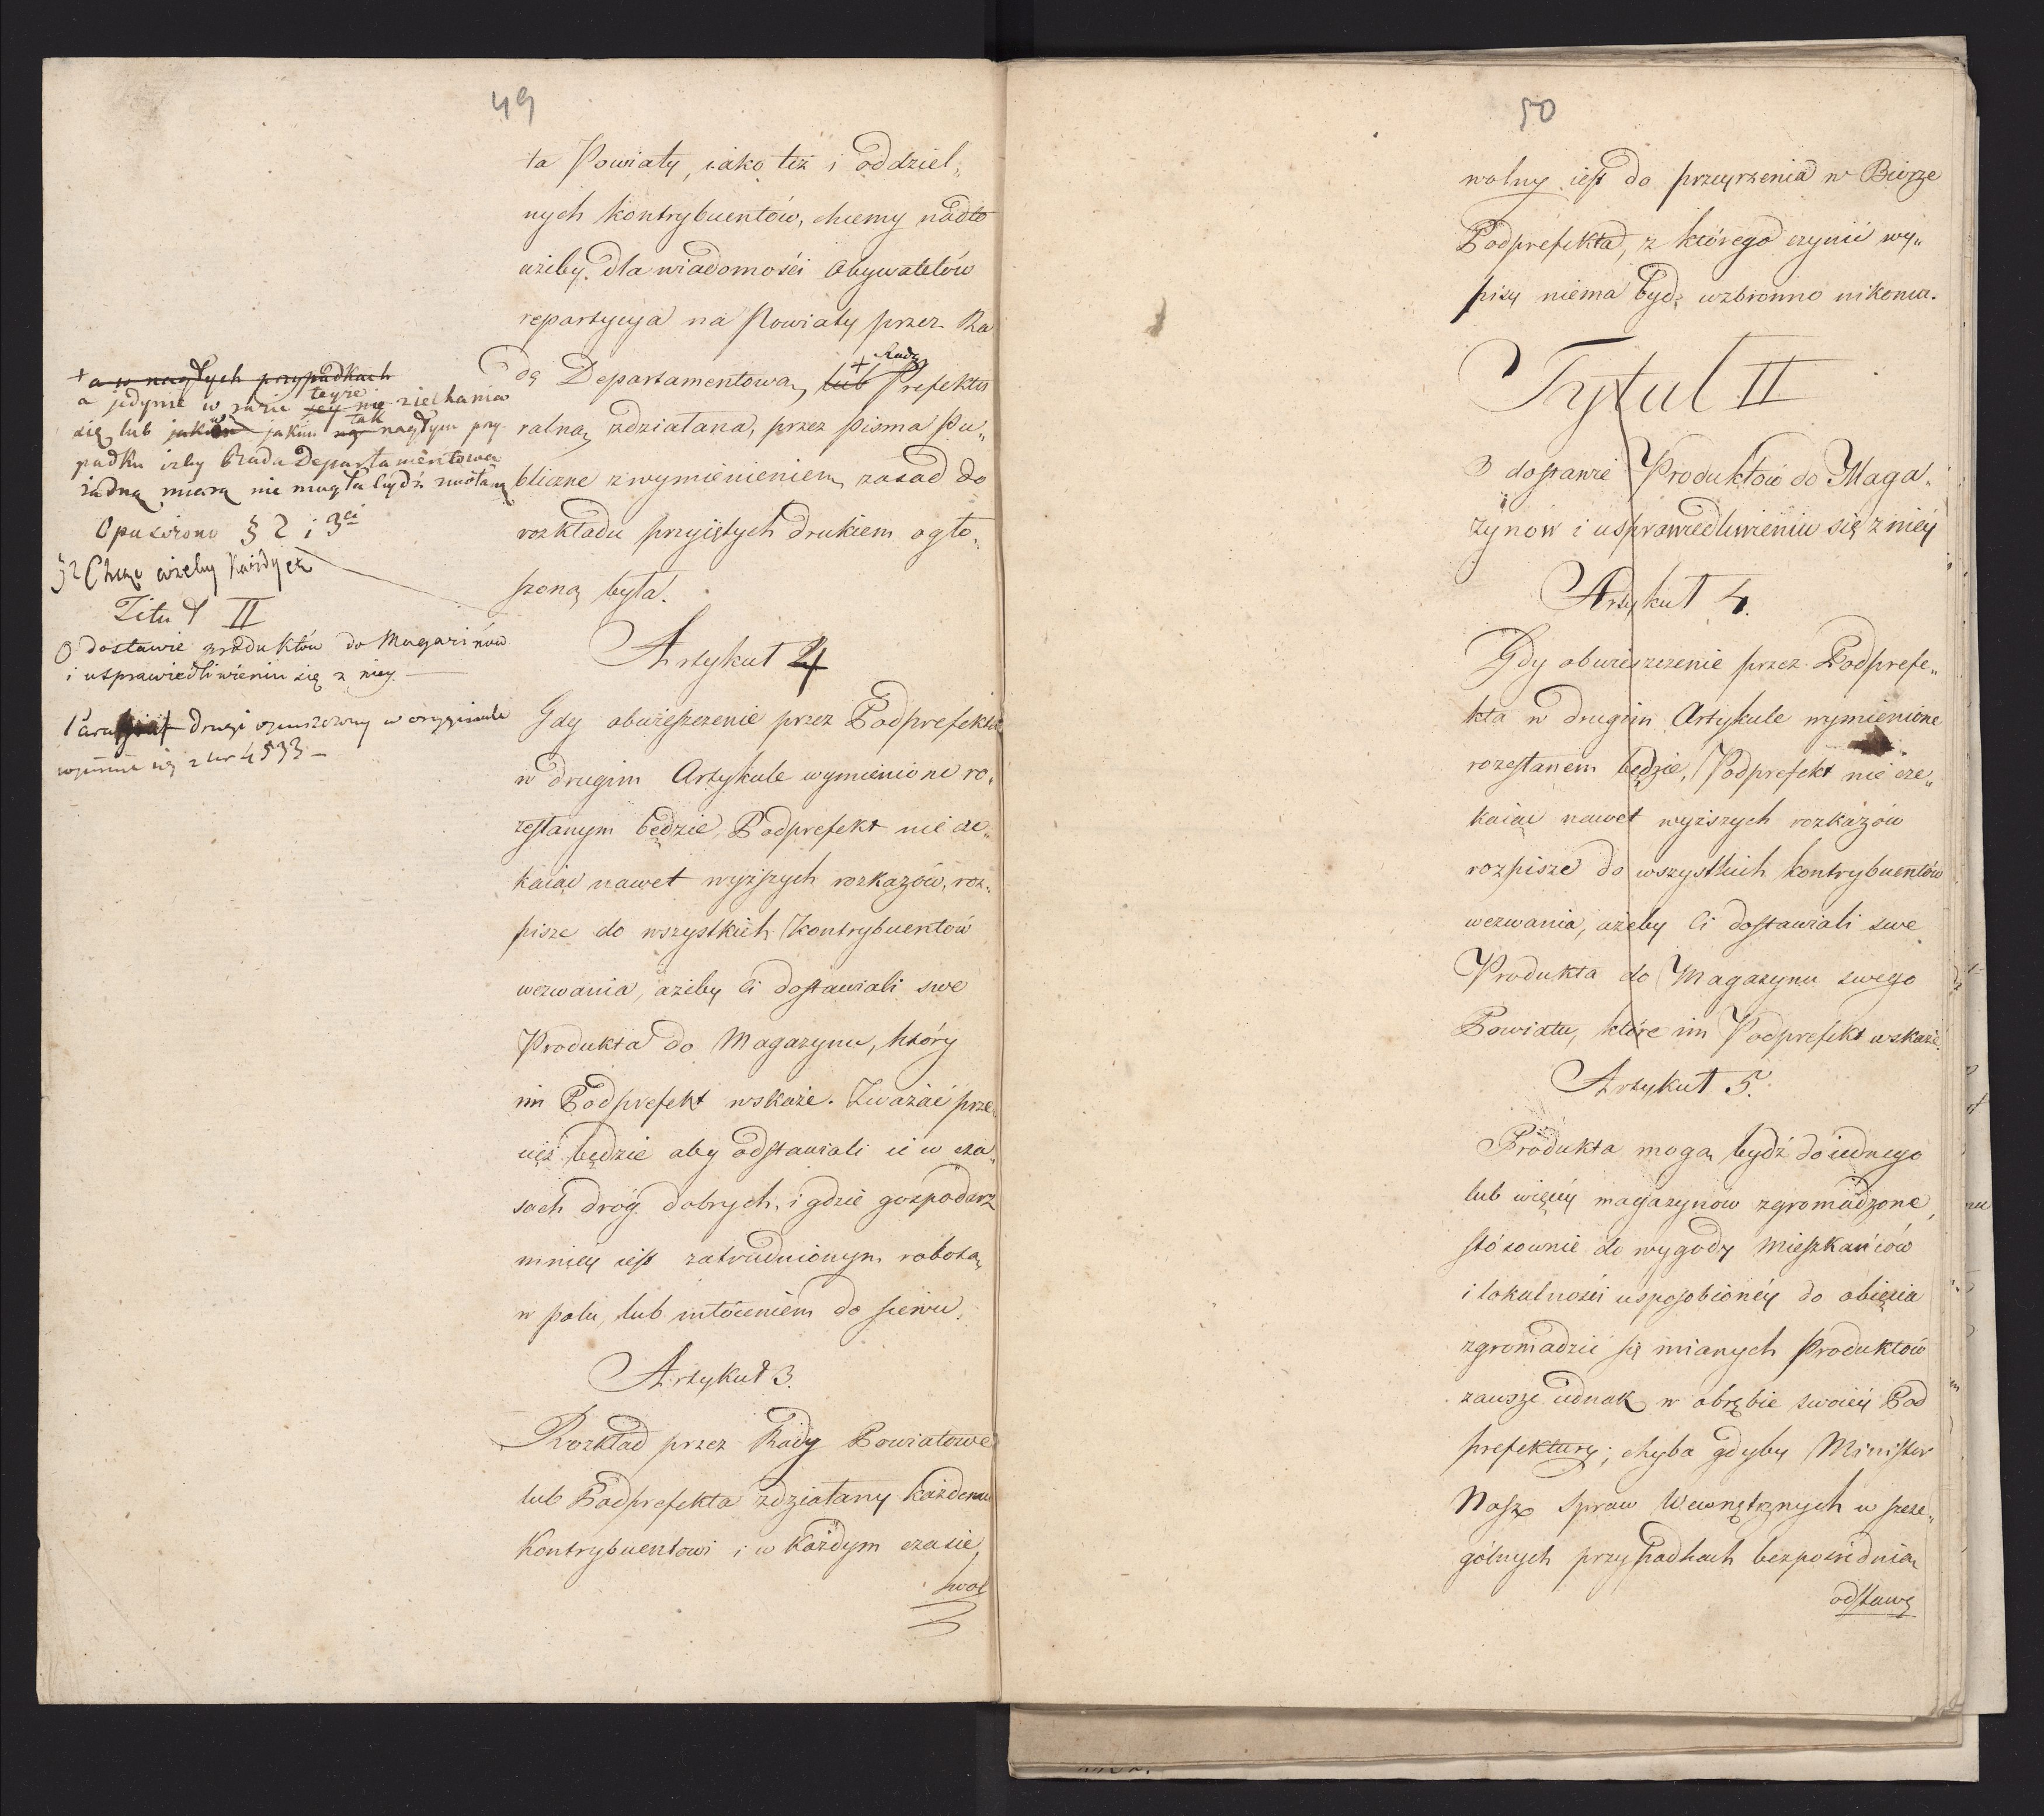 49
ta Powiaty, iako też i oddziel„
nych kontrybuentów, chcemy nadto
ażeby dla wiadomości Obywatelów
repartycya na Powiaty przez Ra
dę Departamentową lub + Rady Prefektu
ralną zdziałana, przez pisma Pu„
bliczne z wymienieniem zasad do
rozkładu przyiętych drukiem ogło„
szoną była.
+ a w nagłych przypadkach
a jedynie w razie teyże nie ziechania
się lub jakim tak nagłym przy
padku iżby Rada Departamentowa
żadną miarą nie mogła bydź zwołaną
Opuszczono § 2 i 3ci
§ 2 Chcąc ażeby każdy
Titul II
O dostawie produktów do Magazinów
i usprawiedliwieniu się z niey.
Paragraf drugi opuszczony w oryginale
się 4533 –
Artykuł 4
Gdy obwieszczenie przez Podprefekta
w drugim Artykule wymienione ro„
zesłanym będzie, Podprefekt nie cze„
kaiąc nawet wyższych rozkazów, roz„
pisze do wszystkich kontrybuentów
wezwania, ażeby ci dostawiali swe
Produkta do Magazynu, który
im Podprefekt wskaże. Zważać prze
cież będzie aby odstawiali ie w cza„
sach dróg dobrych, i gdzie gospodarz
mniey iest zatrudnionym robotą
w polu, lub młóceniem do siewu.
Artykuł 3.
Rozkład przez Rady Powiatowe
lub Podprefekta zdziałany każdemu
Kontrybuentowi i w każdym czasie
wol
50
wolny iest do przeyrzenia w Biórze
Podprefekta, z którego czynić wy„
pisy niema bydź wzbronno nikomu.
Tytuł II
O dostawie Produktów do Maga„
zynów i usprawiedliwieniu się z niéy
Artykuł 4.
Gdy obwieszczenie przez Podprefe„
kta w drugim Artykule wymienione
rozesłanem będzie, Podprefekt nie cze„
kaiąc nawet wyższych rozkazów
rozpisze do wszystkich kontrybuentów
wezwania, ażeby ci dostawiali swe
Produkta do Magazynu swego
Powiatu, które im Podprefekt wskaże.
Artykuł 5.
Produkta mogą bydź do iednego
lub więcéy magazynow zgromadzone,
stósownie do wygody Mieszkańców
i lokalności usposobionéy do obięcia
zgromadzić się mianych Produktów
zawsze iednak w obrębie swoiéy Pod
prefektury; chyba gdyby Minister
Nasz Spraw Wewnętrznych w szcze„
gólnych przypadkach bezpośrednią
odstawę